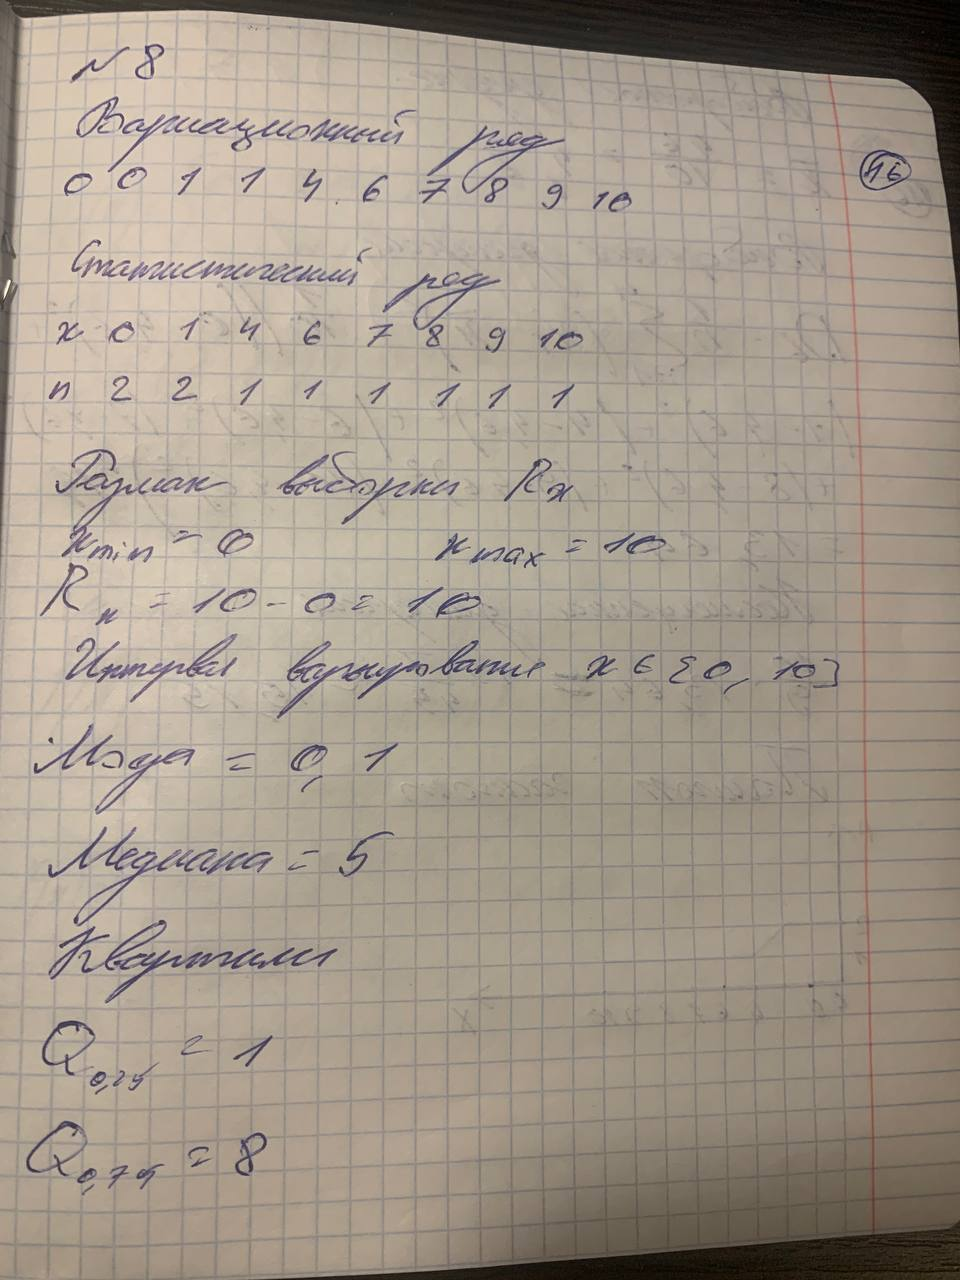 № 8
Вариационный ряд
46
0 0 1 1 4 6 7 8 9 10
Статистический ряд
x 0 1 4 6 7 8 9 10
n 2 2 1 1 1 1 1 1
Размах выборки Rx
xmin = 0 xmax = 10
Rx = 10 - 0 = 10
Интервал варьирования x ∈ [0, 10]
Мода = 0, 1
Медиана = 5
Квартили
Q0,25 = 1
Q0,75 = 8